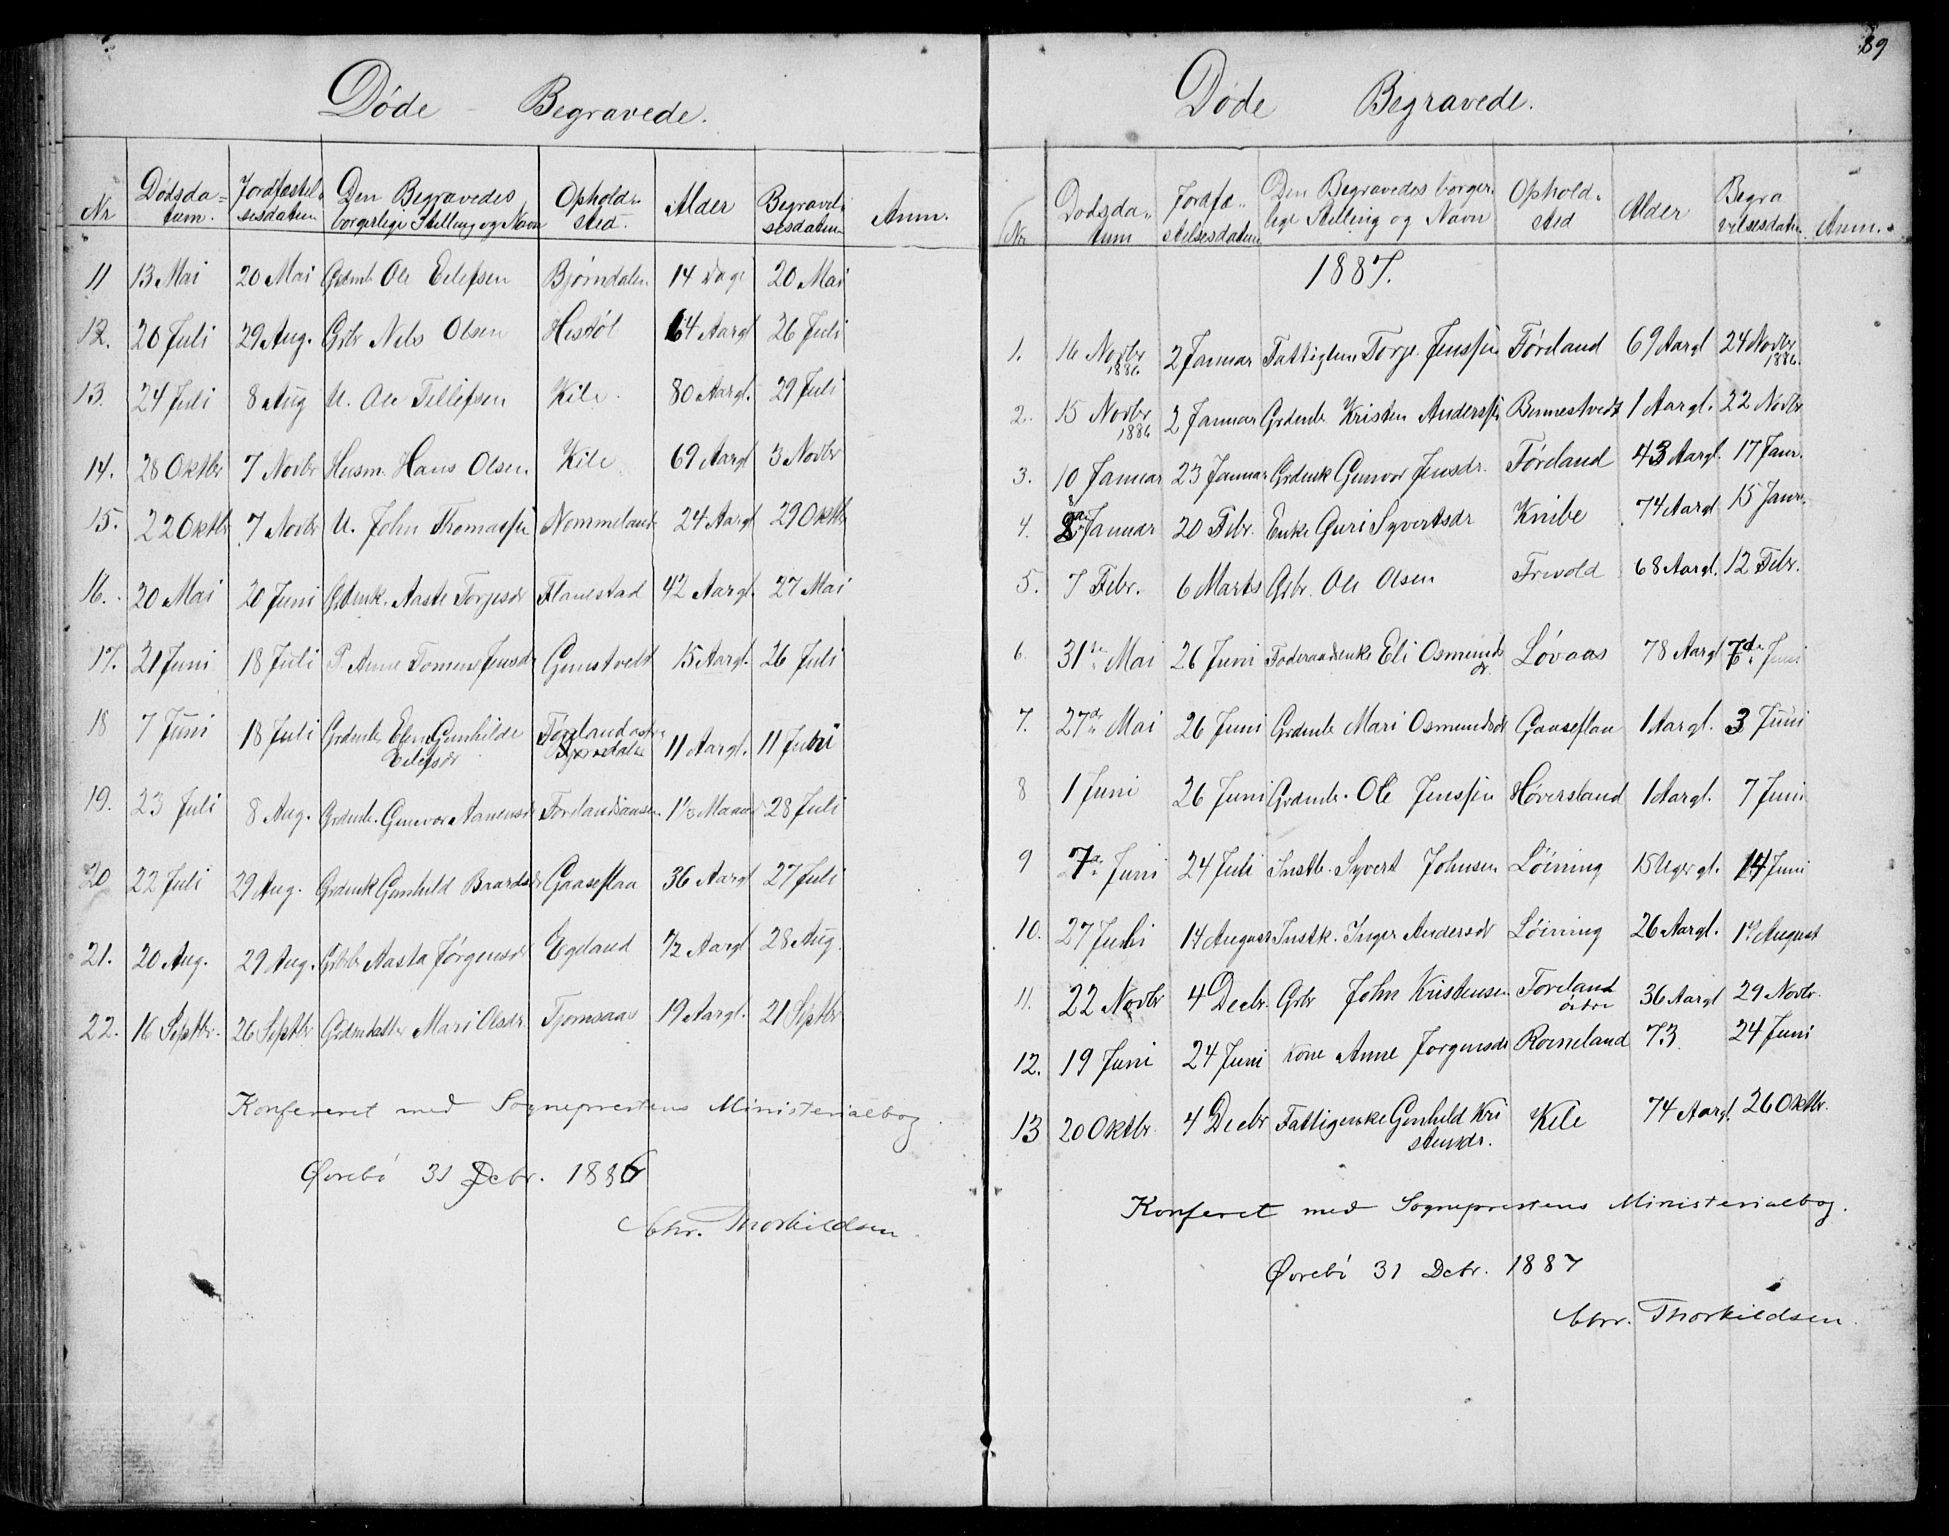 89
Døde - Begravede.
Nr Dødsda=tum. Jordfæstel=sesdatum Den Begravedes borgerlige Stilling og Navn Opholds=sted. Alder Begravel=sesdatum Anm.
11 13 Mai 20 Mai Grdmb Ole Eilefsen Bjørndalen 14 Dage 20 Mai
12. 20 Juli 29 Aug. Grbr Nils Olsen Hestøl 64 Aargl 26 Juli
13. 24 Juli 8 Aug U. Ole Tellefsen Kile. 80 Aargl. 29 Juli
14. 28 Oktbr 7 Novbr Husm. Hans Olsen Kile 69 Aargl 3 Novbr
15. 22 Oktbr 7 Novbr U. John Thomassen Nommeland 24 Aargl 29 Oktbr
16. 20 Mai 20 Juni Grdmk. Aaste Torjesdr Flanestad 42 Aargl. 27 Mai
17. 21 Juni 18 Juli P. Anne Tomene Jensdr Gumstvedt 15 Aargl. 26 Juli
18 7 Juni 18 Juli Grdmb Elen Gunhilde Føreland østre
Eilefsdr 11 Aargl. 11 Juni
19. 23 Juli 8 Aug. Grdmb. Gunvor Aanensdr Forelandsaasen 1½ Maaned 28 Juli
20 22 Juli 29 Aug. Grdmk Gunhild Baardsdr Gaaseflaa 36 Aargl 27 Juli
21. 20 Aug. 29 Aug. Grbb Aasta Jørgensdr Egeland ½ Aargl 28 Aug.
22. 16 Septbr. 26 Septbr Grdmdatter Mari Olsdr. Tjomsaas 19 Aargl. 21 Septbr
Konfereret med Sogneprestens Ministerialbog
Øvrebø 31 Debr. 1886
Chr. Thorkildsen.
Døde Begravede.
Nr. Dødsda=tum Jordfæ=stelsesdatum Den Begravedes borger=lige Stilling og Navn Ophold=sted Alder Begravelsesdatum. Anm.
1887.
1. 16 Novbr 1886. 2 Januar Fattiglem Torje Jenssen Føreland 69 Aargl 24 Novbr 1886.
2. 15 Novbr 1886 2 Januar Grdmb Kristen Anderssen Bennestvedt 1 Aargl. 22 Novbr
3. 10 Januar 23 Januar Grdmk Gunvor Jensdr. Føreland 43 Aargl. 17 Janr.
4. 8 Januar 20 Febr. Enke Guri Syvertsdr Knibe 74 Aargl 15 Janr.
5. 7 Febr. 6 Marts Grbr. Ole Olsen Frivold 68 Aargl. 12 Febr.
6. 31te Mai 26 Juni Foderaadsenke Eli Osmunds
dr. Løvaas 78 Aargl 7de Juni
7. 27de Mai 26 Juni Grdmb Mari Osmundsdr Gaaseflaa 1 Aargl. 3 Juni
8 1 Juni 26 Juni Grdmb. Ole Jenssen Høversland 1 Aargl. 7 Juni
9 7de Juni 24 Juli Instb. Syvert Johnsen Løining 15 Uger gl. 14 Juni
10. 27 Juli 14 August Instk. Inger Andersdr Løining 26 Aargl. 1 August
11. 22 Novbr 4 Decbr. Grbr John Kristensen Foreland østre 36 Aargl 29 Novbr.
12. 19 Juni 24 Juni Kone Anne Jørgensdr Romeland 73 24 Juni
13 20 Oktbr. 4 Decbr Fattigenke Gunhild Kri
stensdr. Kile 74 Aargl. 26 Oktbr.
Konferet med Sogneprestens Ministerialbog.
Øvrebø 31 Debr. 1887
Chr. Thorkildsen.